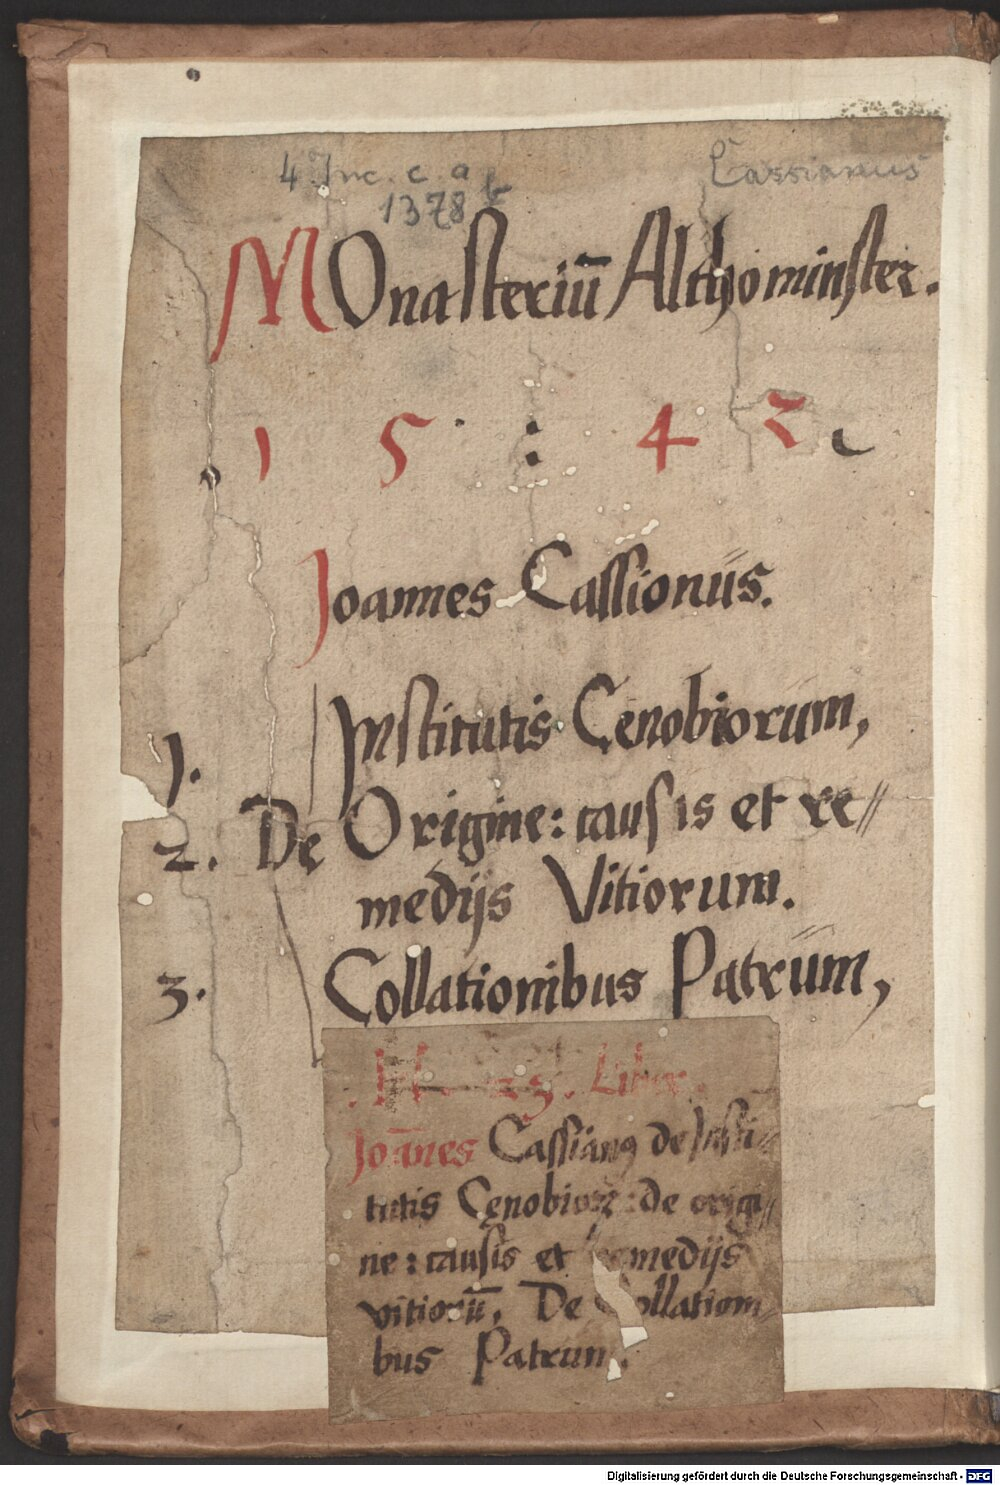 4 Inc. c. a
1378 b
Cassianus
MOnasteriū Althominster.
1 5 : 4 2
Joannes Cassionus.
1. Institutis Cenobiorum,
2. De Origine: causis et re//
medijs Vitiorum.
3. Collationibus Patrum,
Liber.
Joānes Cassianꝰ de Insti//
tutis Cęnobioꝝ: de origi//
ne: causis et remedijs
vitiorū. De Collationi//
bus Patrum.
Digitalisierung gefördert durch die Deutsche Forschungsgemeinschaft - DFG